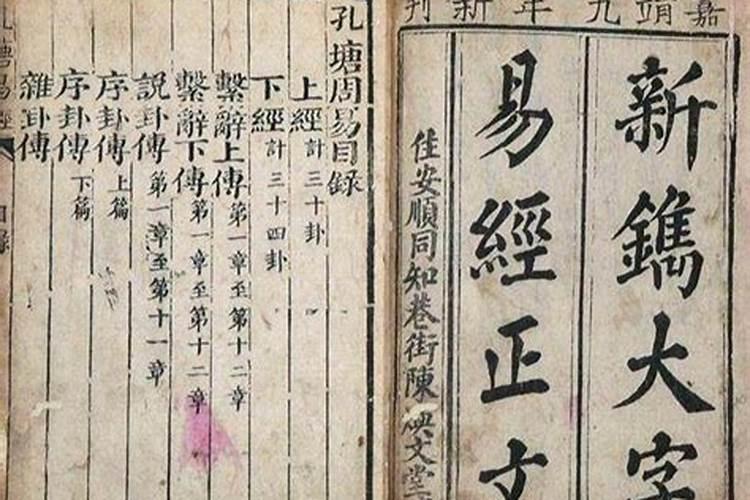 嘉靖九年新刊
新鐫大字
易經正文
住安順同知巷街陳文堂
孔塘周易目錄
上經 計三十卦
下經 計三十四卦
繫辭上傳 第一章至第十二章
繫辭下傳 第一章至第十二章
説卦傳 第一章至第十一章
序卦傳 上篇
序卦傳 下篇
雜卦傳